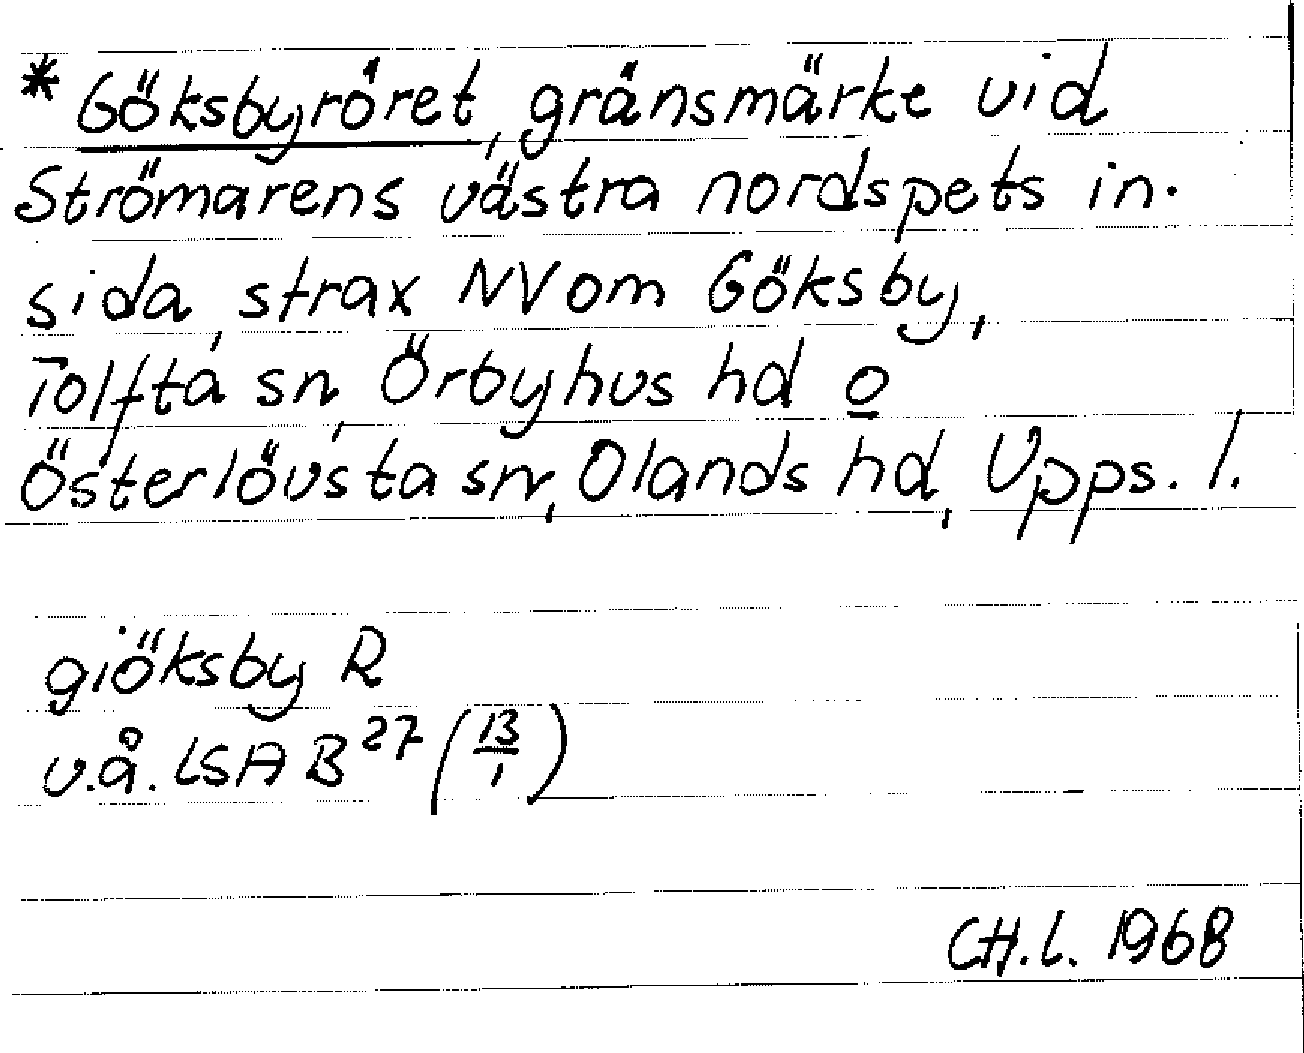 * Göksbyröret, gränsmärke vid
Strömarens västra nordspets in-
sida, strax NV om Göksby,
Tolfta sn, Örbyhus hd o
Österlövsta sn, Olands hd, Upps. l.
giöksby R
u.å. LSA B²⁷ (13/1)
CH.L. 1968